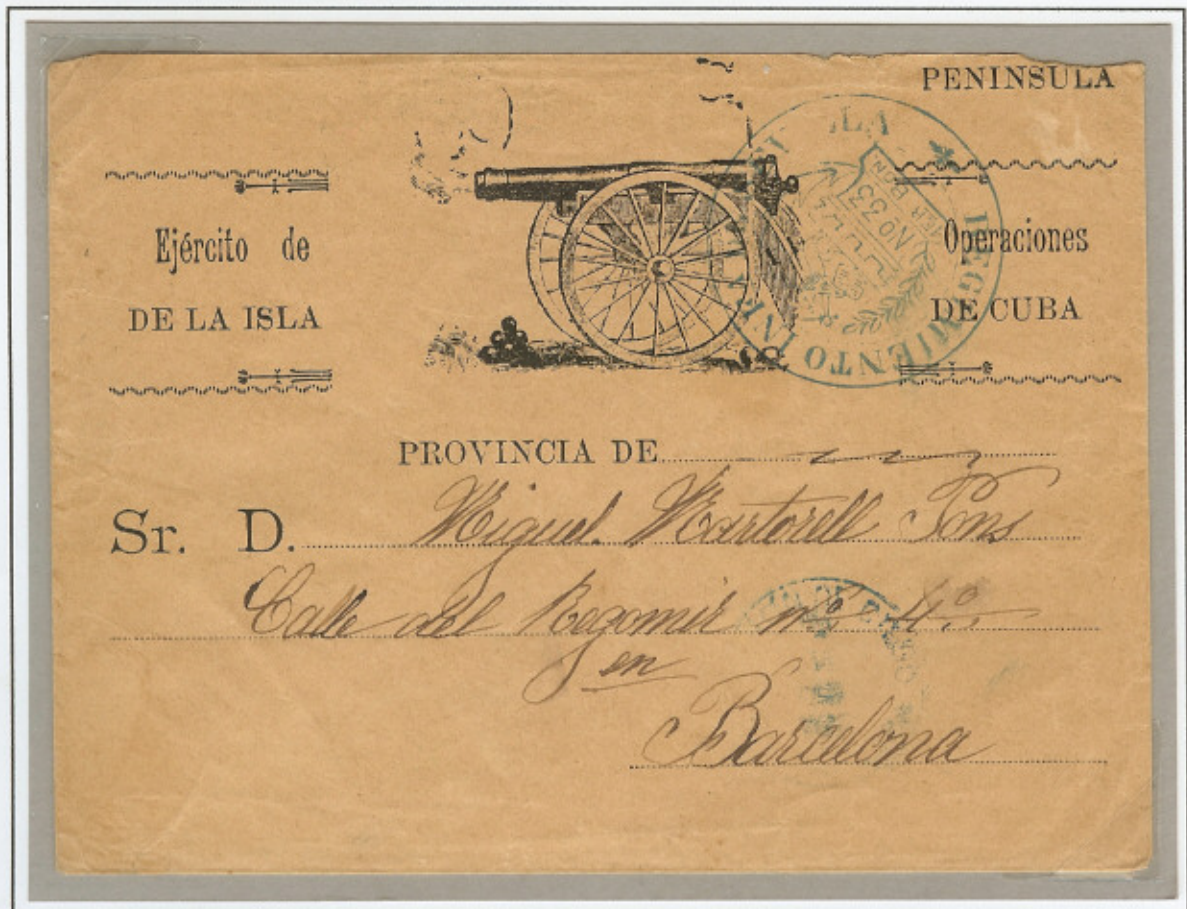 PENINSULA
Ejército de Operaciones
DE LA ISLA DE CUBA
REGIMIENTO INFA
Nº 33
PROVINCIA DE
Sr. D. Miguel Martorell Pons
Calle del Regomir nº 4º
en
Barcelona